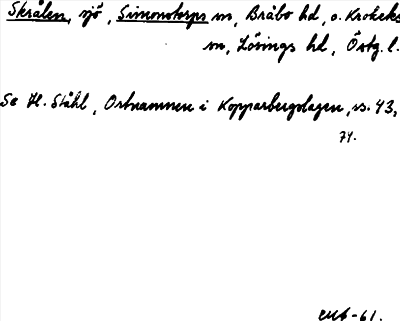 Skrålen, sjö, Simonstorps sn, Bråbo hd, o. Krokeks
sn, Lösings hd, Östg. l.
Se H. Ståhl, Ortnamnen i Kopparbergslagen, s. 43,
71.